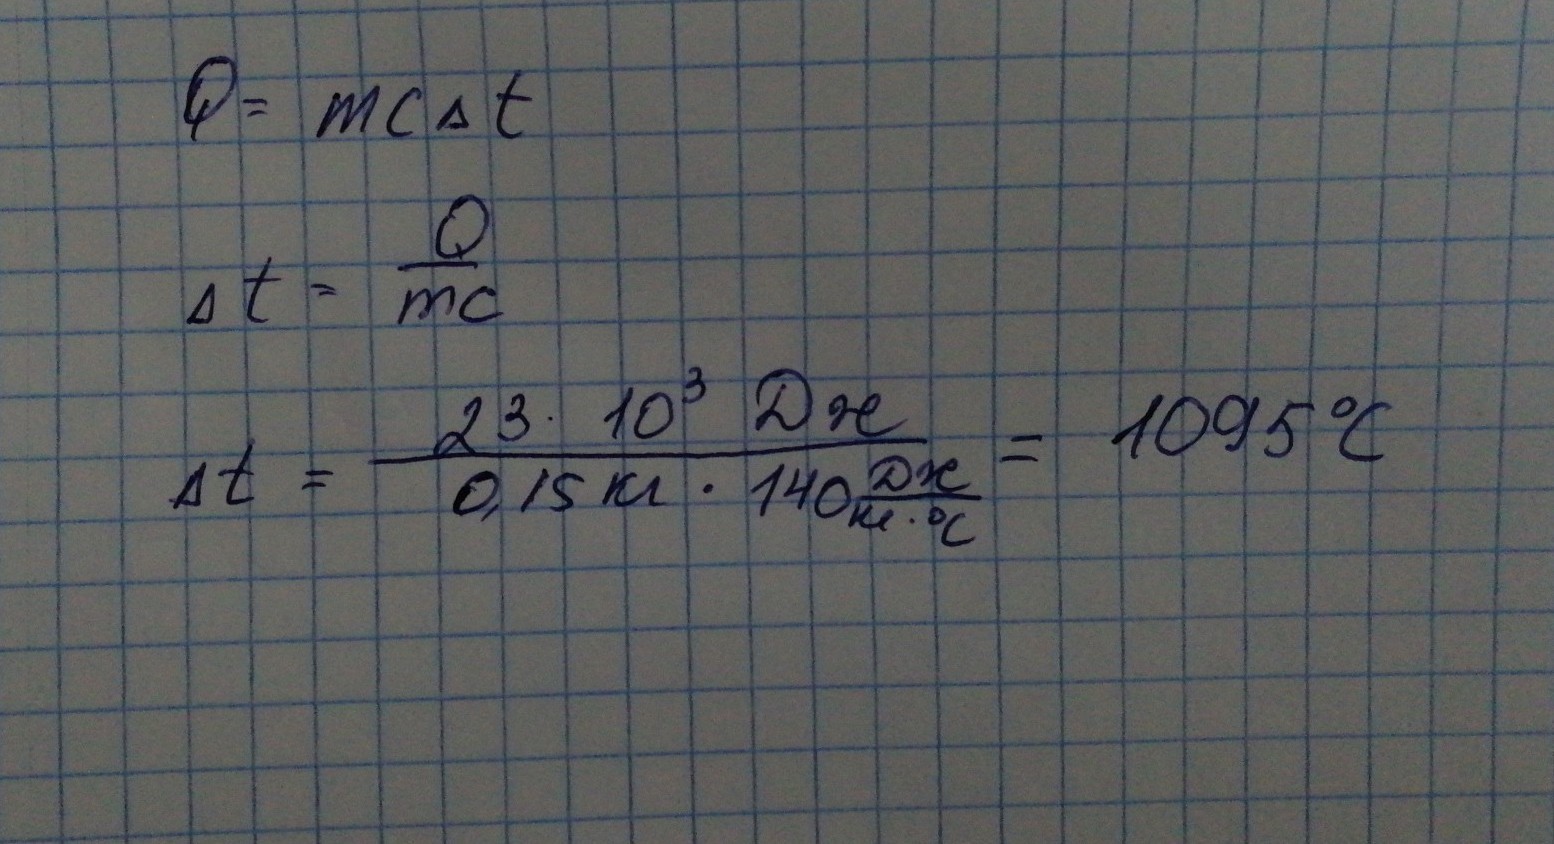 Q = mcΔt
Δt = Q/mc
Δt = 23 · 10³ Дж / 0,15 кг · 140 Дж/кг·°C = 1095°C